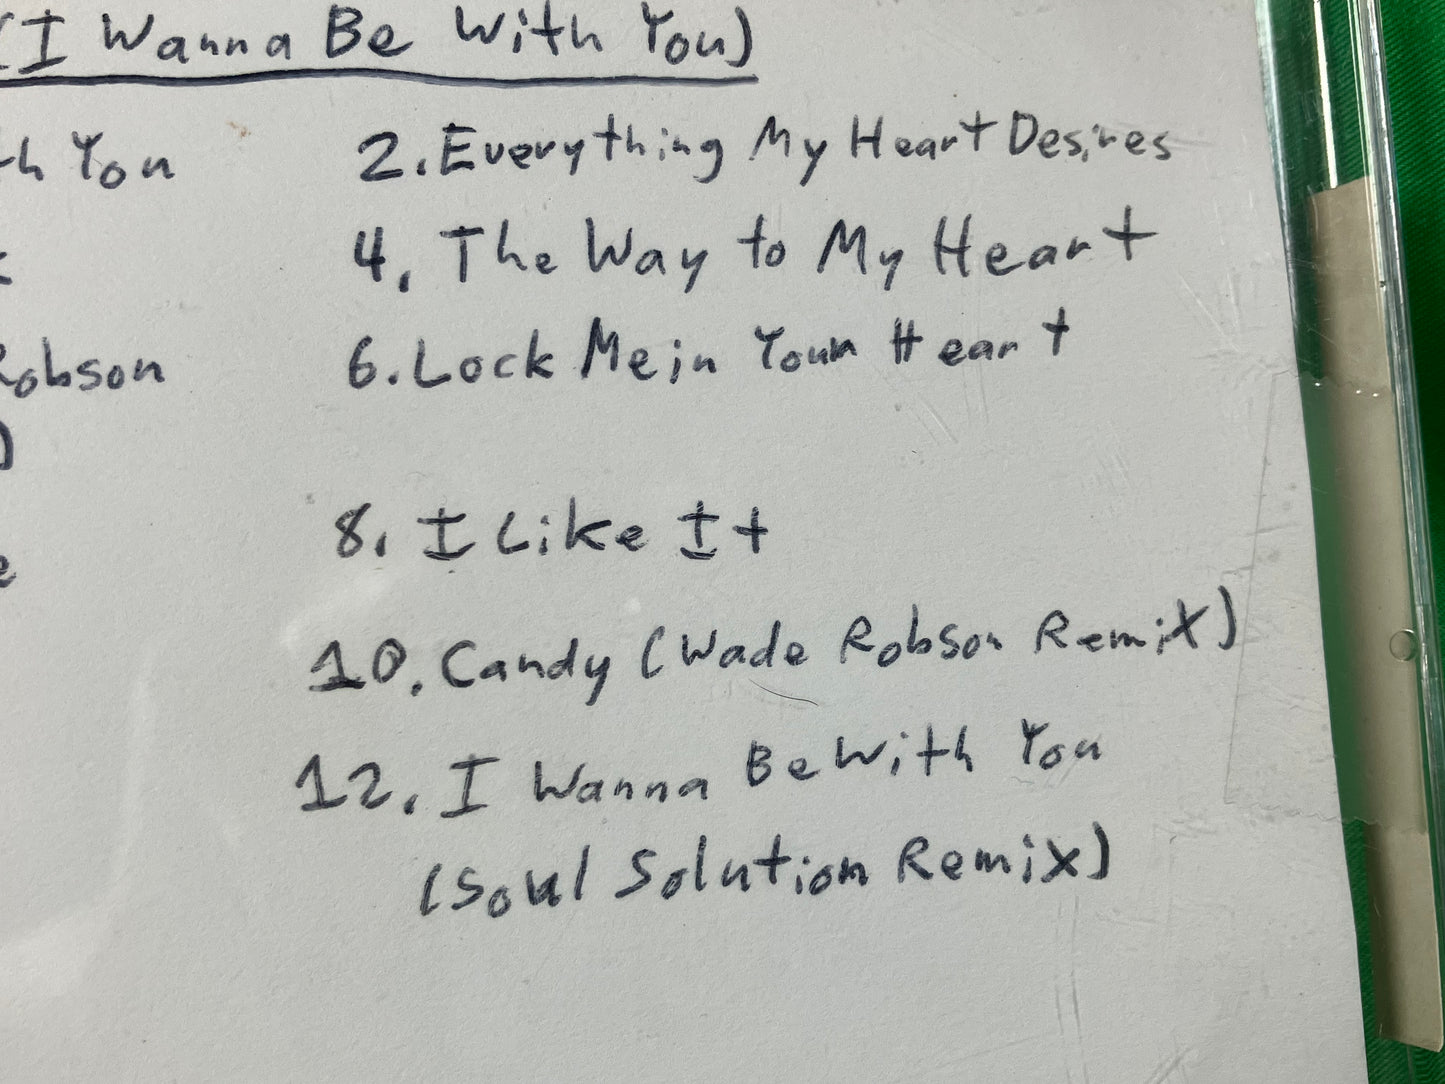 (I Wanna Be With You)
th You 2. Everything My Heart Desires
4. The Way to My Heart
Robson 6. Lock Me in Your Heart
)
8. I Like It
e
10. Candy (Wade Robson Remix)
12. I Wanna Be With You
(Soul Solution Remix)